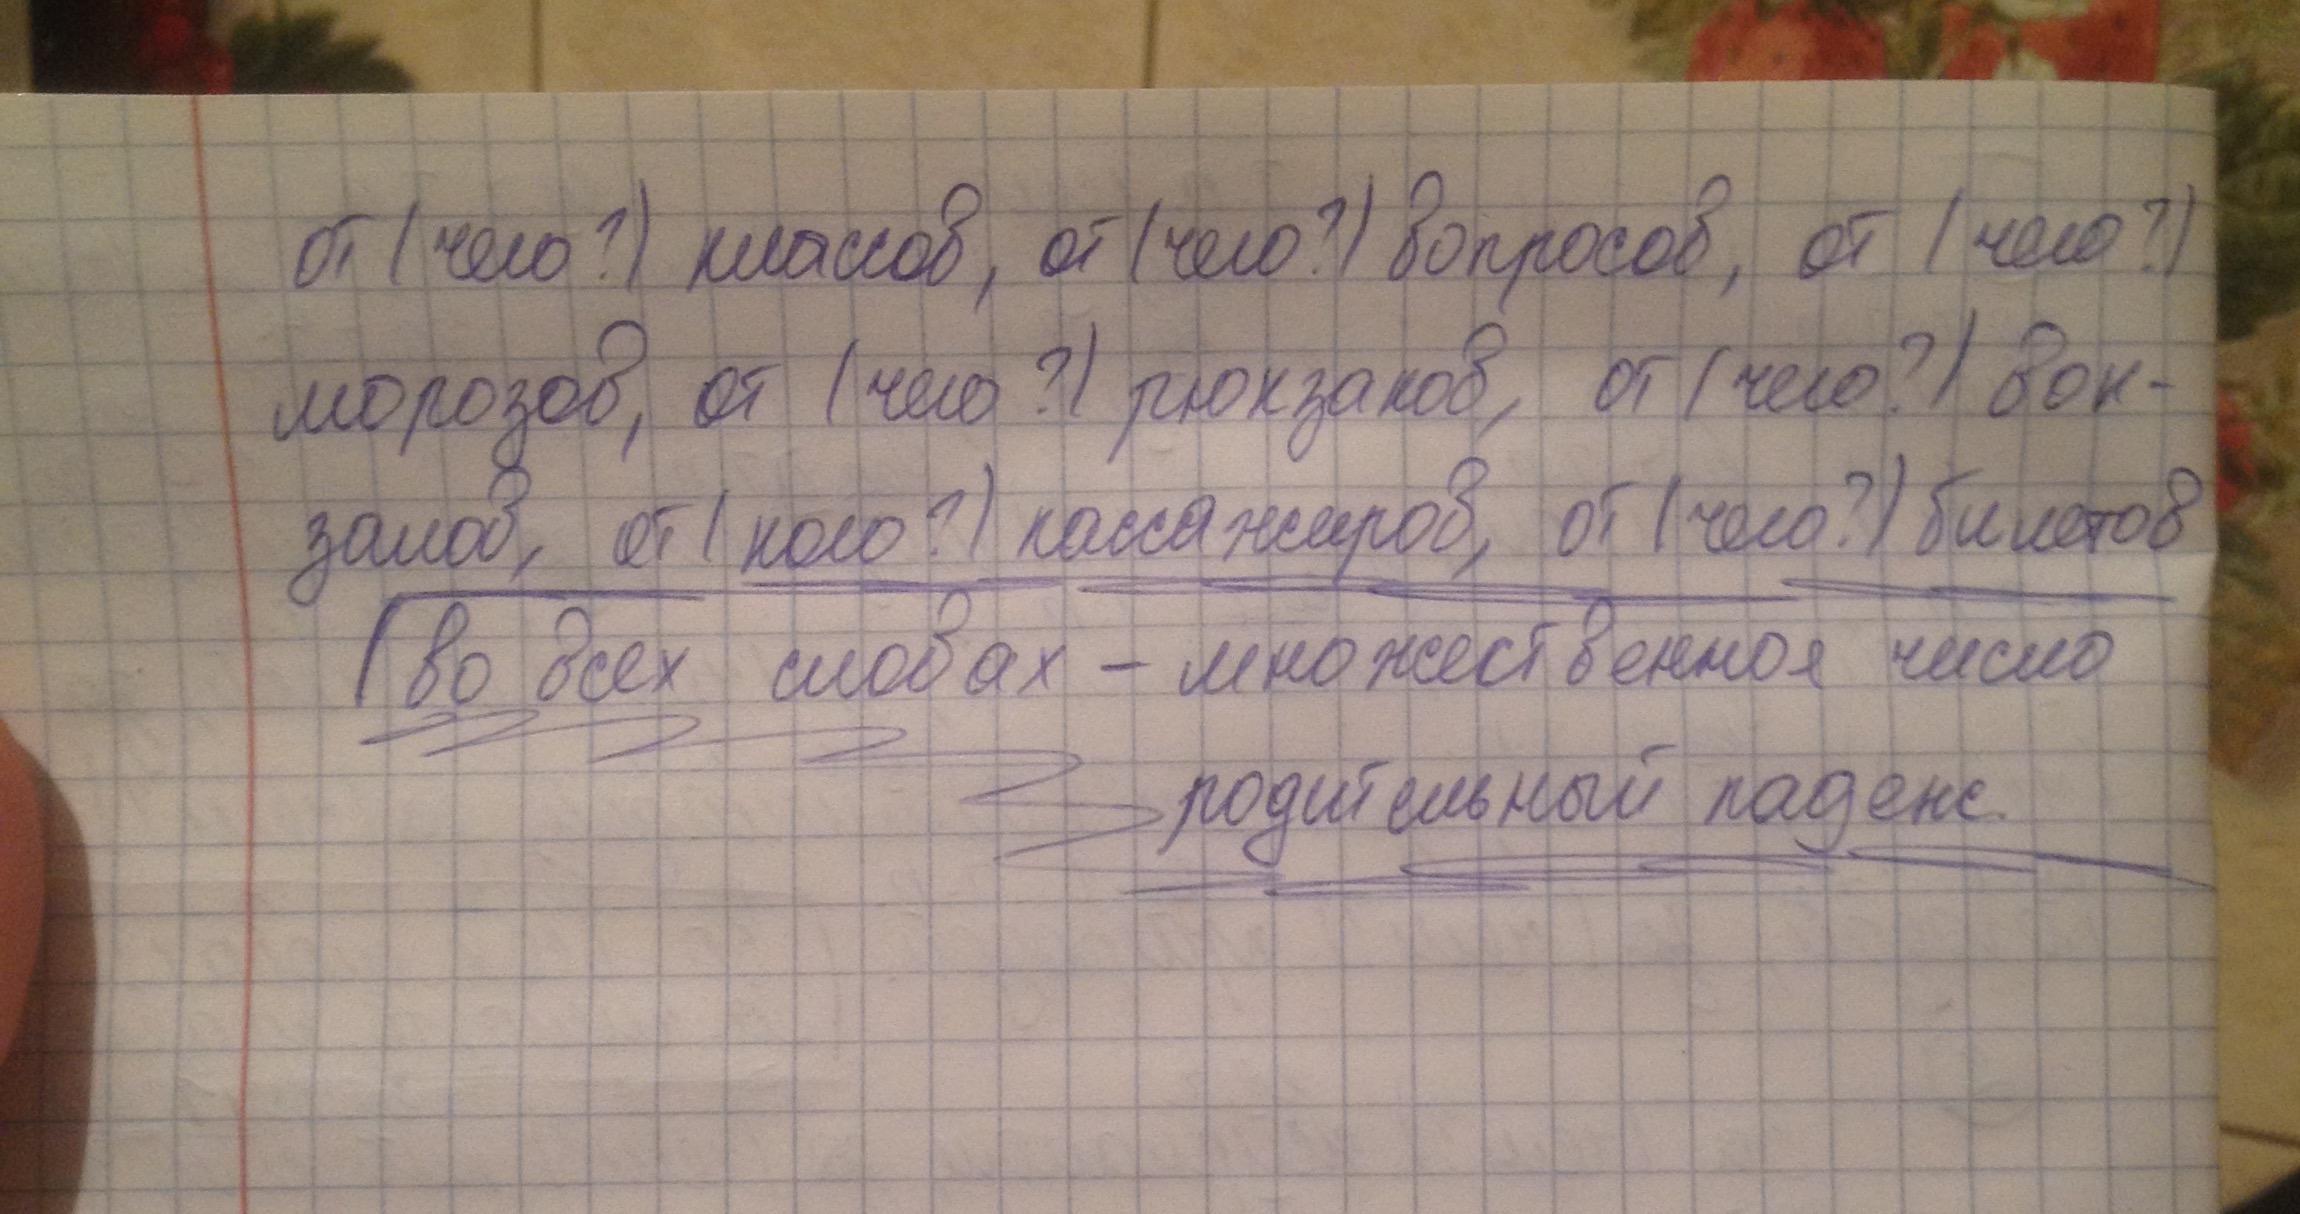 от (чего?) классов, от (чего?) вопросов, от (чего?)
морозов, от (чего?) рюкзаков, от (чего?) вок-
залов, от (кого?) пассажиров, от (чего?) билетов
во всех словах - множественное число
родительный падеж.